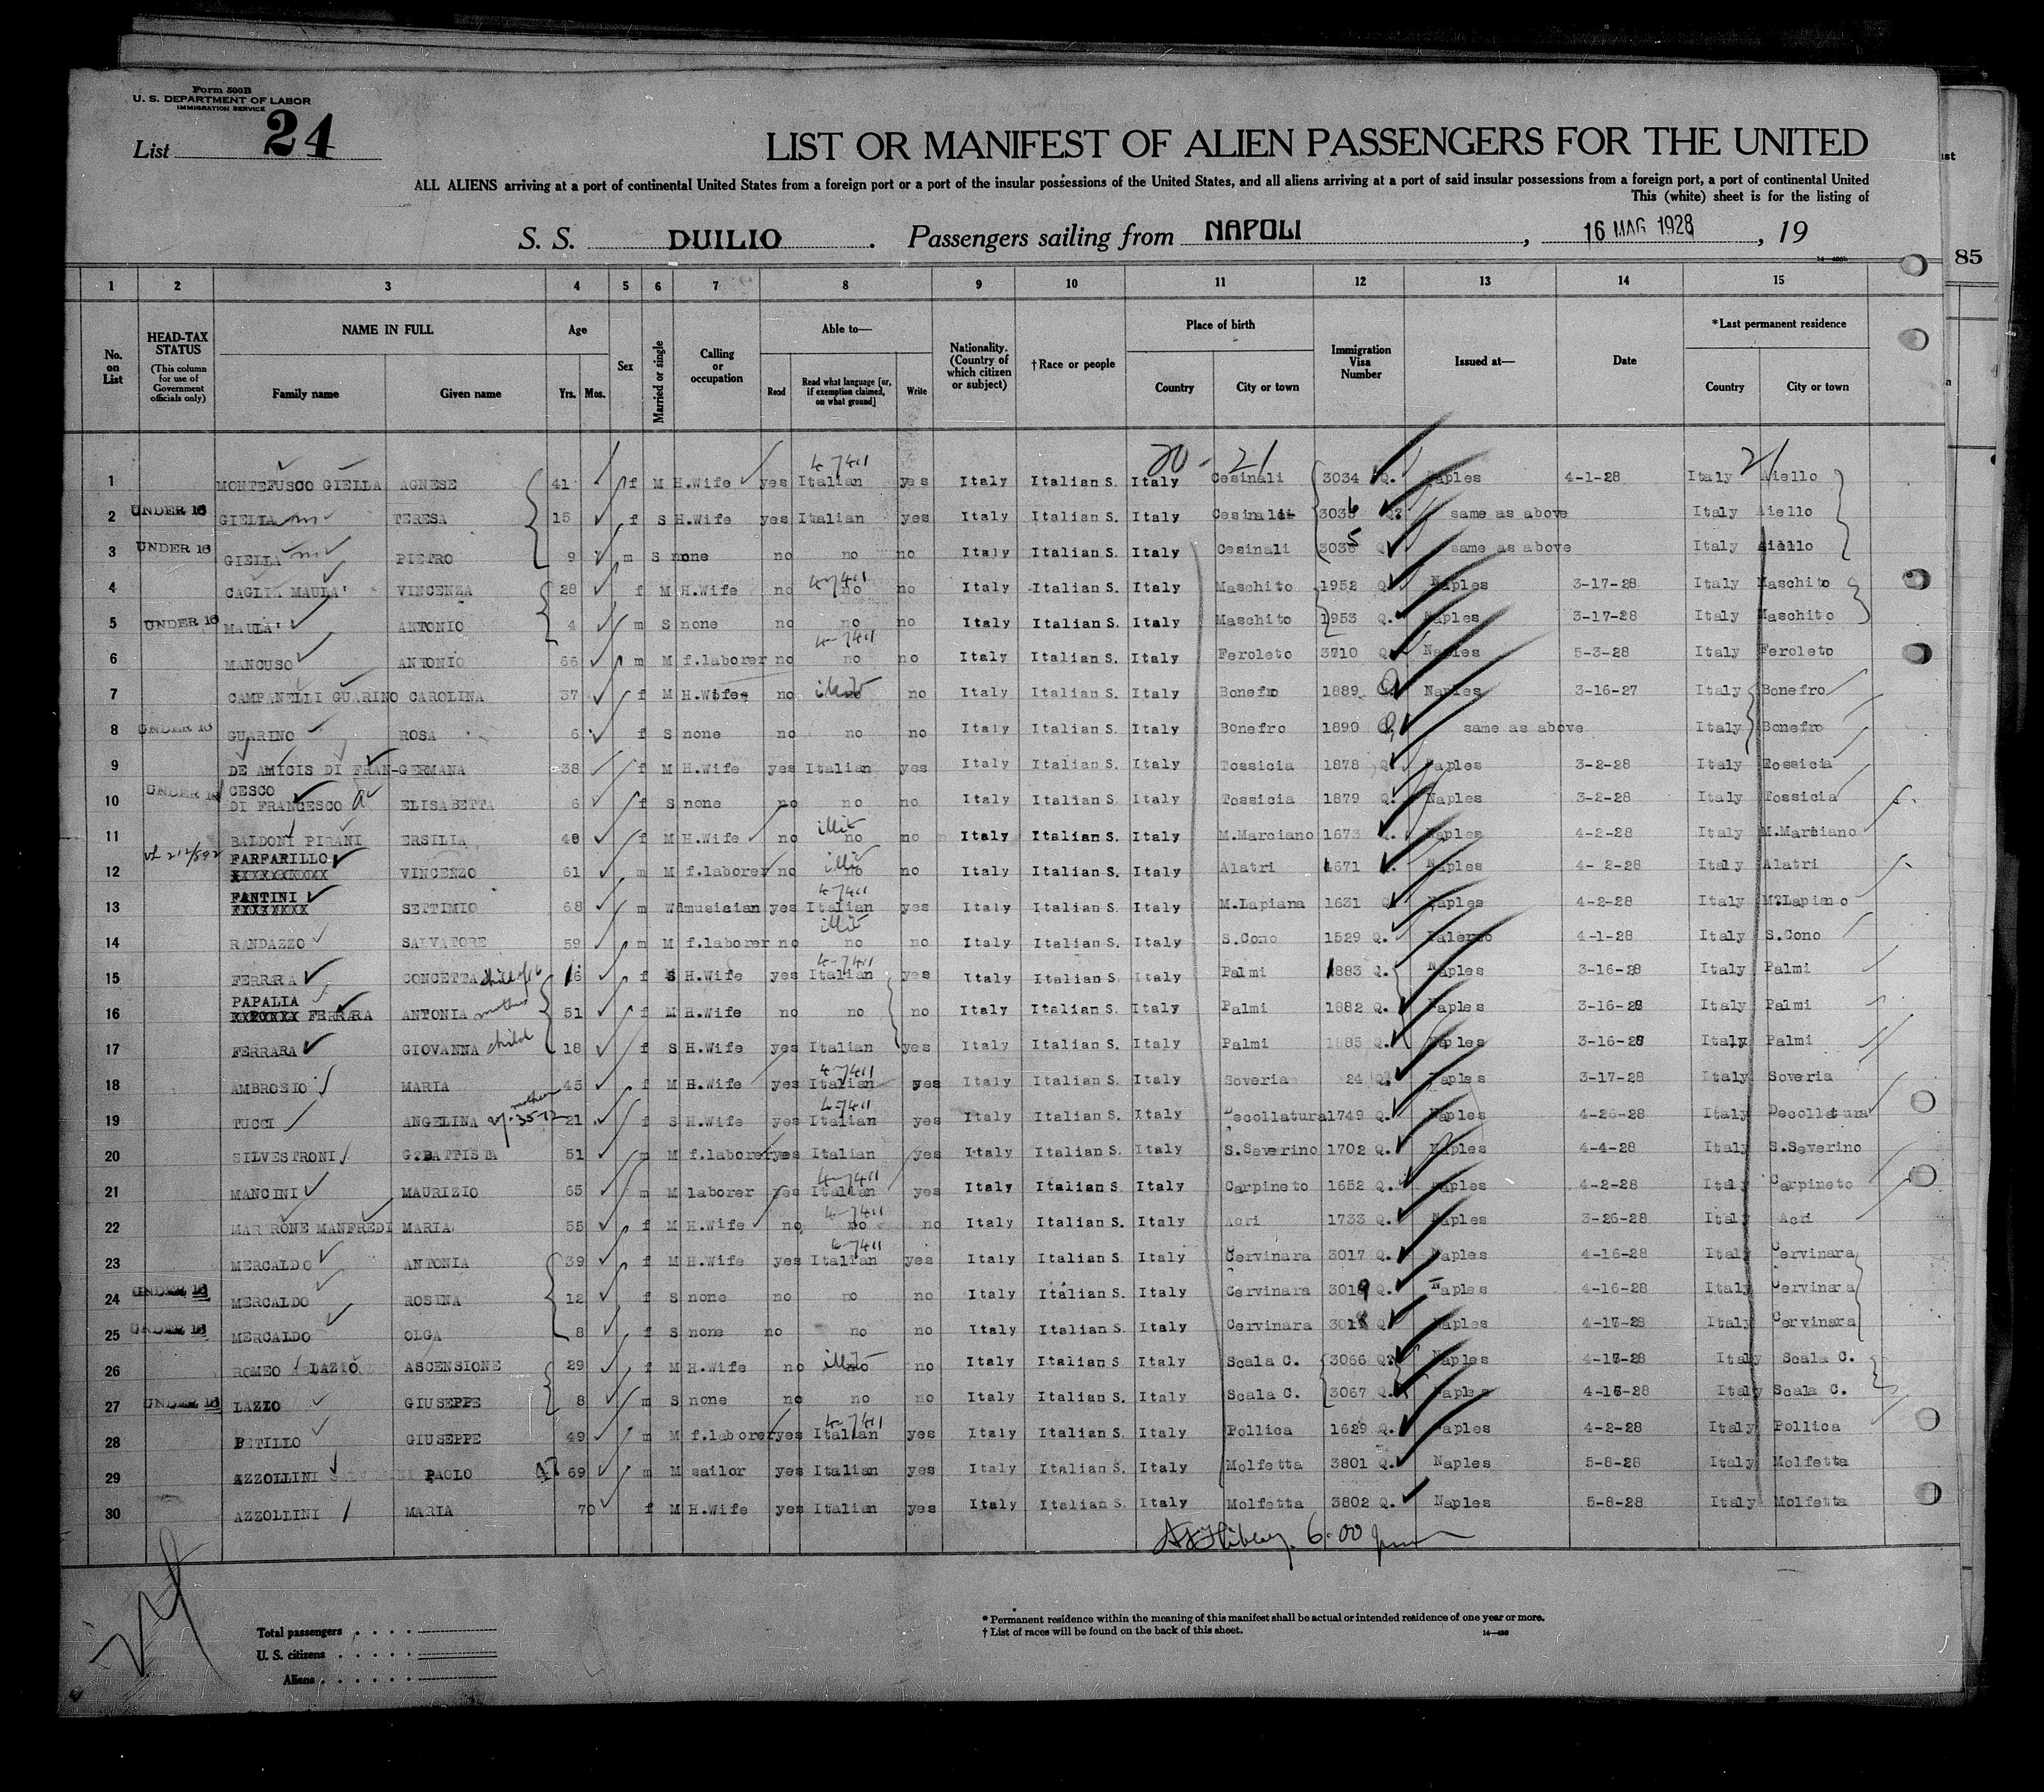 Form 500B
U. S. DEPARTMENT OF LABOR
IMMIGRATION SERVICE
List 24
LIST OR MANIFEST OF ALIEN PASSENGERS FOR THE UNITED
ALL ALIENS arriving at a port of continental United States from a foreign port or a port of the insular possessions of the United States, and all aliens arriving at a port of said insular possessions from a foreign port, a port of continental United
This (white) sheet is for the listing of
S. S. DUILIO . Passengers sailing from NAPOLI , 16 MAG 1928 , 19
85
1 2 3 4 5 6 7 8 9 10 11 12 13 14 15
No. on List HEAD-TAX STATUS (This column for use of Government officials only) NAME IN FULL Family name Given name Age Yrs. Mos. Sex Married or single Calling or occupation Able to— Read Read what language [or, if exemption claimed, on what ground] Write Nationality. (Country of which citizen or subject) †Race or people Place of birth Country City or town Immigration Visa Number Issued at— Date *Last permanent residence Country City or town
20 - 21 21
1 MONTEFUSCO GIELLA AGNESE 41 f M H.Wife yes Italian yes Italy Italian S. Italy Cesinali 3034 Q. Naples 4-1-28 Italy Aiello
2 UNDER 16 GIELLA m TERESA 15 f S H.Wife yes Italian yes Italy Italian S. Italy Cesinali 3036 Q. same as above Italy Aiello
3 UNDER 16 GIELLA m PIETRO 9 m S none no no no Italy Italian S. Italy Cesinali 3035 Q same as above Italy Aiello
4 CAGLIA MAULA' VINCENZA 28 f M H.Wife no no no Italy Italian S. Italy Maschito 1952 Q Naples 3-17-28 Italy Maschito
5 UNDER 16 MAULA' ANTONIO 4 m S none no no no Italy Italian S. Italy Maschito 1953 Q. Naples 3-17-28 Italy Maschito
6 MANCUSO ANTONIO 66 m M f.laborer no no no Italy Italian S. Italy Feroleto 3710 Q. Naples 5-3-28 Italy Feroleto
7 CAMPANELLI GUARINO CAROLINA 37 f M H.Wife no no no Italy Italian S. Italy Bonefro 1889 Q Naples 3-16-27 Italy Bonefro
8 UNDER 16 GUARINO ROSA 6 f S none no no no Italy Italian S. Italy Bonefro 1890 Q. same as above Italy Bonefro
9 DE AMICIS DI FRAN- GERMANA 38 f M H.Wife yes Italian yes Italy Italian S. Italy Tossicia 1878 Q. Naples 3-2-28 Italy Tossicia
CESCO
10 UNDER 16 DI FRANCESCO ELISABETTA 6 f S none no no no Italy Italian S. Italy Tossicia 1879 Q. Naples 3-2-28 Italy Tossicia
11 BALDONI PIRANI ERSILIA 48 f M H.Wife no no no Italy Italian S. Italy M.Marciano 1673 Q. Naples 4-2-28 Italy M.Marciano
FARFARILLO
12 XXXXXXXXXXX VINCENZO 61 m M f.laborer no no no Italy Italian S. Italy Alatri 1671 Naples 4-2-28 Italy Alatri
FANTINI
13 XXXXXXXX SETTIMIO 68 m Wd musician yes Italian yes Italy Italian S. Italy M.Lapiana 1631 Q Naples 4-2-28 Italy M.Lapiano
14 RANDAZZO SALVATORE 59 m M f.laborer no no no Italy Italian S. Italy S.Cono 1529 Q. Palermo 4-1-28 Italy S.Cono
15 FERRARA CONCETTA 16 f S H.Wife yes Italian yes Italy Italian S. Italy Palmi 1883 Q. Naples 3-16-28 Italy Palmi
PAPALIA
16 FERRARA ANTONIA mother 51 f M H.Wife no no no Italy Italian S. Italy Palmi 1882 Q. Naples 3-16-28 Italy Palmi
17 FERRARA GIOVANNA child 18 f S H.Wife yes Italian yes Italy Italian S. Italy Palmi 1885 Q. Naples 3-16-28 Italy Palmi
18 AMBROSIO MARIA 45 f M H.Wife yes Italian yes Italy Italian S. Italy Soveria 24 Q. Naples 3-17-28 Italy Soveria
19 TUCCI ANGELINA mother 21 f S H.Wife yes Italian yes Italy Italian S. Italy Decollatura 1749 Q. Naples 4-26-28 Italy Decollatura
20 SILVESTRONI G.BATTISTA 51 m M f.laborer yes Italian yes Italy Italian S. Italy S.Severino 1702 Q. Naples 4-4-28 Italy S.Severino
21 MANCINI MAURIZIO 65 m M laborer yes Italian yes Italy Italian S Italy Carpineto 1652 Q. Naples 4-2-28 Italy Carpineto
22 MARRONE MANFREDI MARIA 55 f M H.Wife no no no Italy Italian S. Italy Acri 1733 Q. Naples 3-26-28 Italy Acri
23 MERCALDO ANTONIA 39 f M H.Wife yes Italian yes Italy Italian S. Italy Cervinara 3017 Q. Naples 4-16-28 Italy Cervinara
24 UNDER 16 MERCALDO ROSINA 12 f S none no no no Italy Italian S. Italy Cervinara 3019 Q. Naples 4-16-28 Italy Cervinara
25 UNDER 16 MERCALDO OLGA 8 f S none no no no Italy Italian S. Italy Cervinara 3018 Q Naples 4-17-28 Italy Cervinara
26 ROMEO LAZIO ASCENSIONE 29 f M H.Wife no no no Italy Italian S Italy Scala C. 3066 Q. Naples 4-18-28 Italy Scala C.
27 UNDER 16 LAZIO GIUSEPPE 8 m S none no no no Italy Italian S. Italy Scala C. 3067 Q. Naples 4-16-28 Italy Scala C.
28 PETILLO GIUSEPPE 49 m M f.laborer yes Italian yes Italy Italian S. Italy Pollica 1629 Q. Naples 4-2-28 Italy Pollica
29 AZZOLLINI PAOLO 69 m M sailor yes Italian yes Italy Italian S. Italy Molfetta 3801 Q. Naples 5-8-28 Italy Molfetta
30 AZZOLLINI MARIA 70 f M H.Wife yes Italian yes Italy Italian S. Italy Molfetta 3802 Q. Naples 5-8-28 Italy Molfetta
6:00 pm
Total passengers . . . .
U. S. citizens . . . . .
Aliens . . . . . .
* Permanent residence within the meaning of this manifest shall be actual or intended residence of one year or more.
† List of races will be found on the back of this sheet.